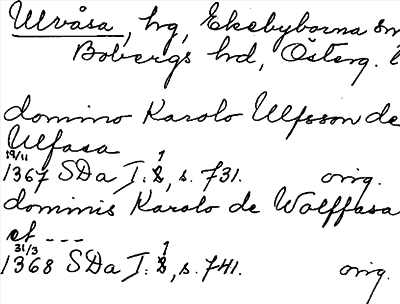 Ulvåsa, hg, Ekebyborna sn
Bobergs hd, Österg. l
domino Karolo Ulfsson de
Ulfasa
19/11
1367 SDa I:1, s. 731. orig.
dominis Karolo de Wolffasa
et ---
31/3
1368 SDa I:1, s. 741. orig.